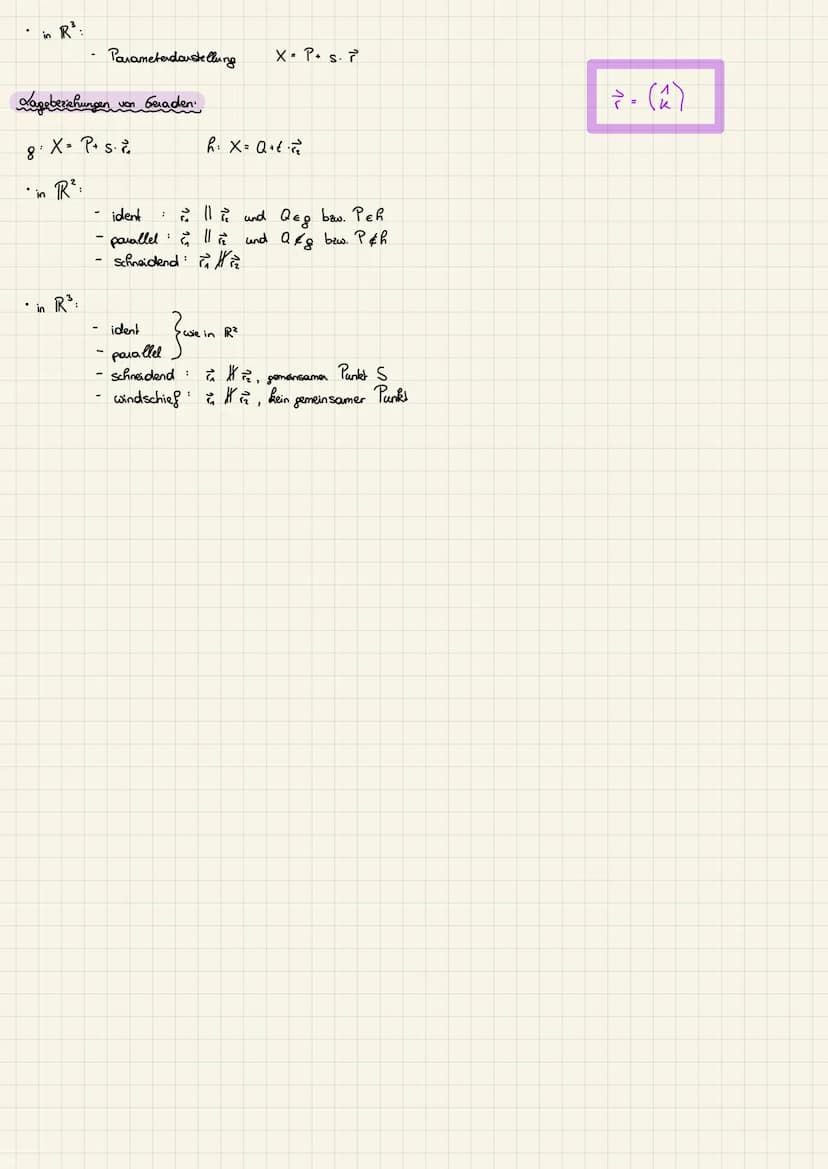 • in ℝ³:
- Parameterdarstellung X = P + s · r⃗
r⃗ = (1 k)
Lagebeziehungen von Geraden:
g: X = P + s · r⃗₁ h: X = Q + t · r⃗₂
• in ℝ²:
- ident : r⃗₁ ∥ r⃗₂ und Q ∈ g bzw. P ∈ h
- parallel : r⃗₁ ∥ r⃗₂ und Q ∉ g bzw. P ∉ h
- schneidend : r⃗₁ ∦ r⃗₂
• in ℝ³:
- ident } wie in ℝ²
- parallel
- schneidend : r⃗₁ ∦ r⃗₂, gemeinsamer Punkt S
- windschief : r⃗₁ ∦ r⃗₂, kein gemeinsamer Punkt